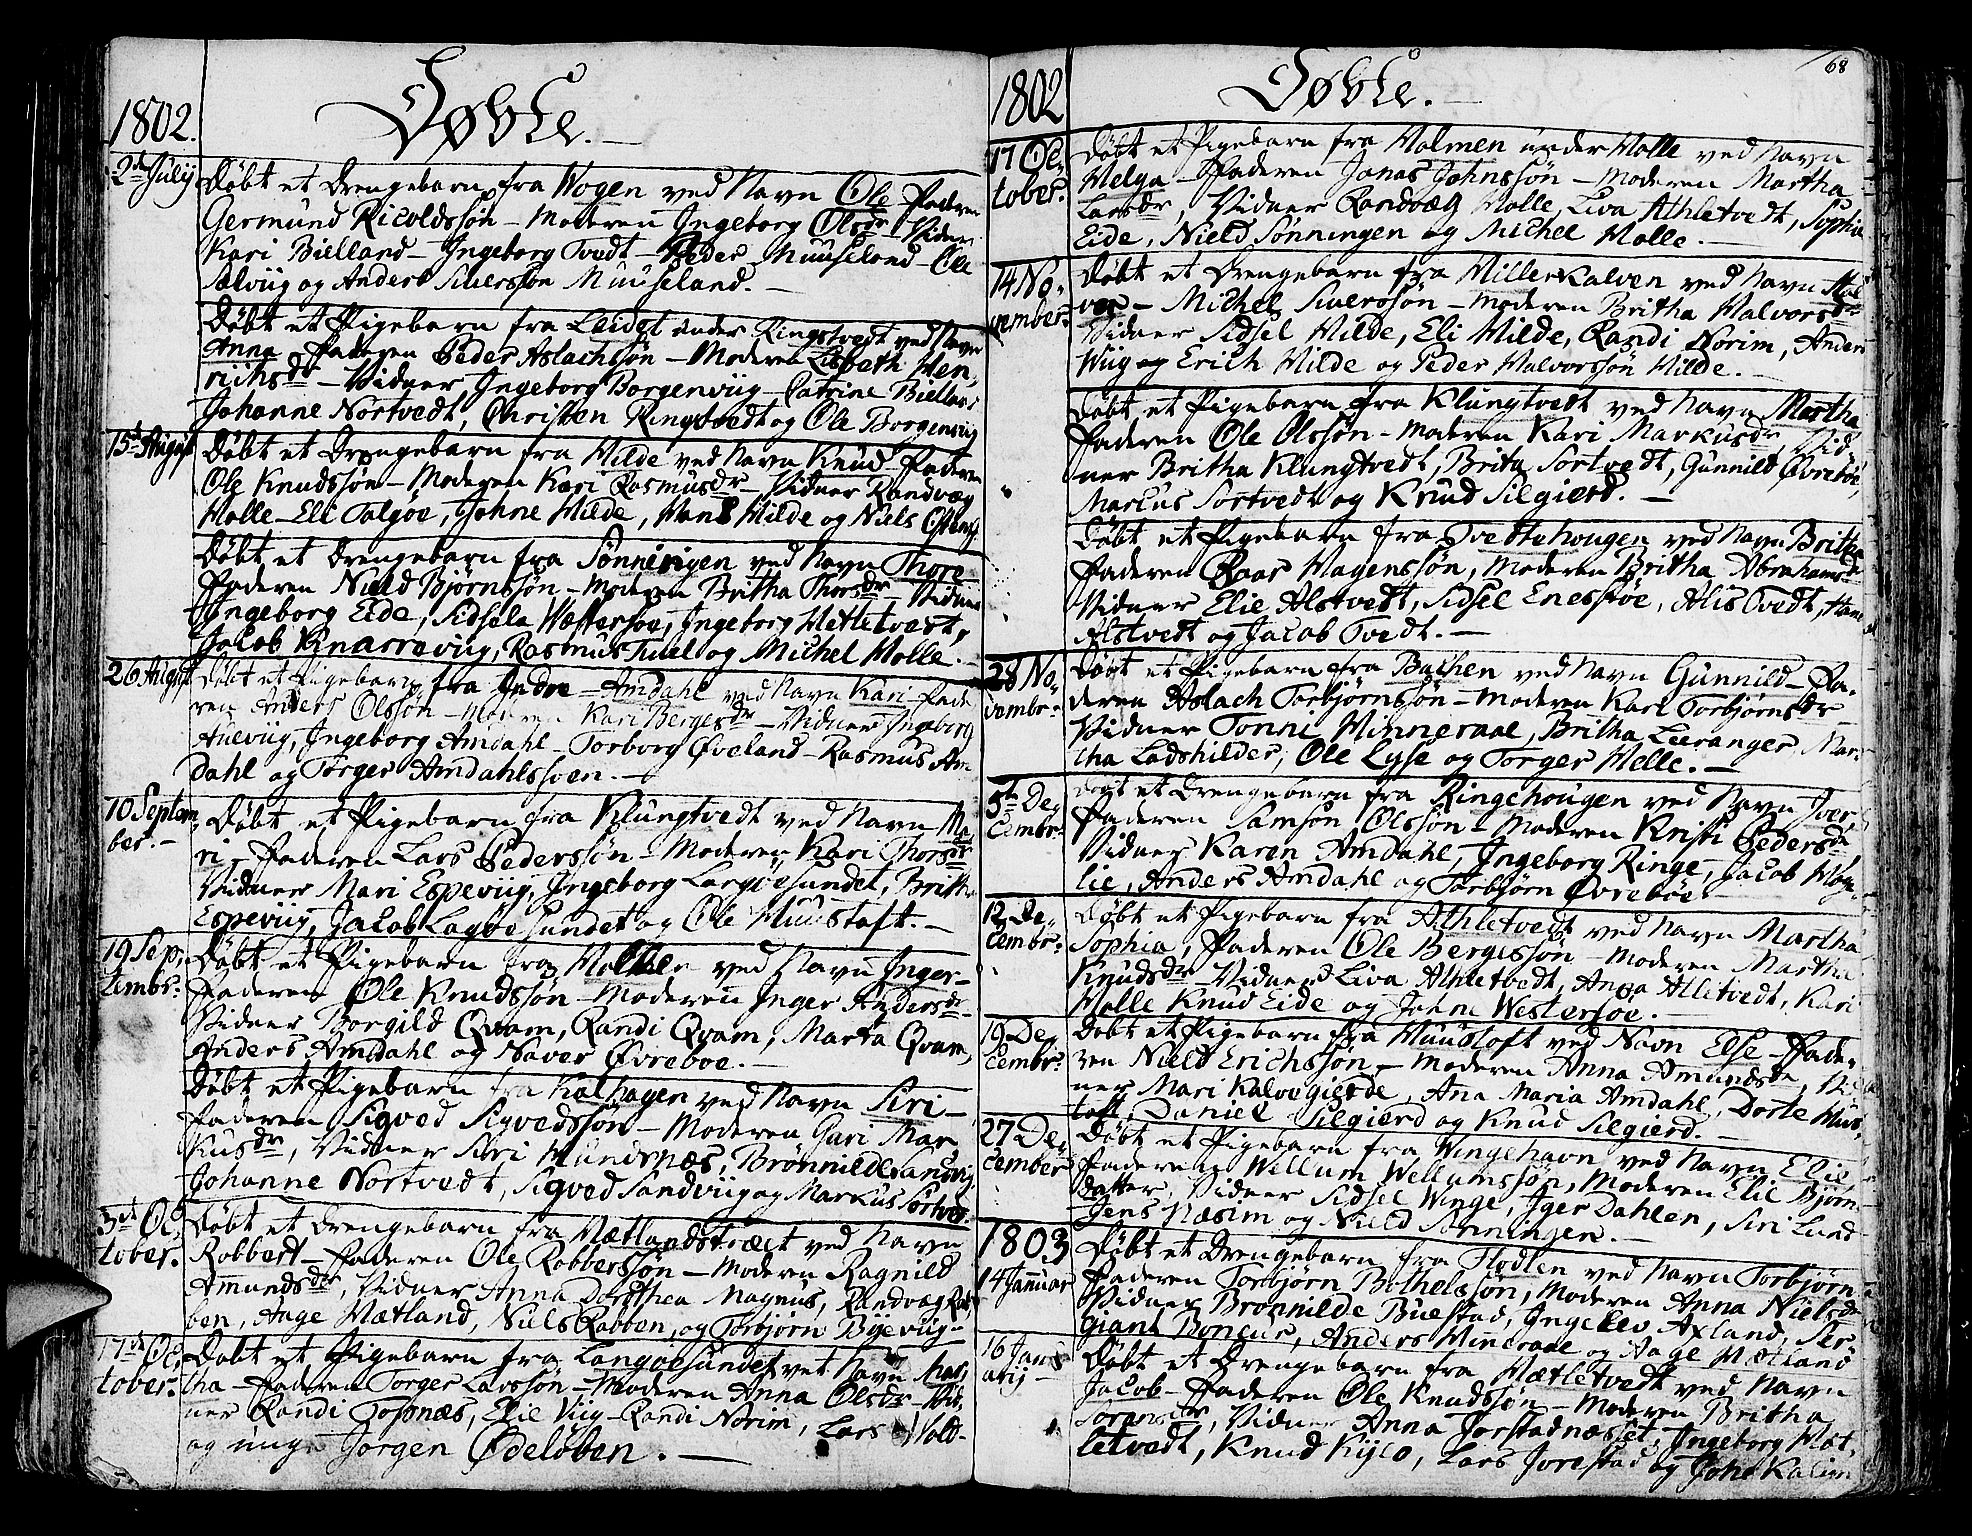 1802.
Døbte.
2d Julij
Døbt et Drengebarn fra Wogen ved Navn Ole Faderen
Germund Ricoldssøn - Moderen Ingeborg Olsdr - Vidner
Kari Bielland - Ingeborg Tvedt - Peder Muuseland - Ole
Sælviig og Anders Siverssøn Muuseland. -
Døbt et Pigebarn fra Leidet under Ringstvedt ved Navn
Anna - Faderen Peder Aslachssøn - Moderen Lisbeth Hen-
richsdr - Vidner Ingeborg Borgenviig - Catrine Bielland
Johanne Nortvedt, Christen Ringstvedt og Ole Borgenviig
15de August
Døbt et Drengebarn fra Hilde ved Navn Knud - Faderen
Ole Knudssøn - Moderen Kari Rasmusdr - Vidner Randvæg
Halle - Eli Talgøe, Johne Hilde, Hans Hilde og Niels
Døbt et Drengebarn fra Sønningen ved Navn Thore
Faderen Nield Bjørnssøn - Moderen Britha Thorsdr - Vidner
Ingeborg Eide, Sidsela Wæstersøe, Ingeborg Hetletvedt,
Jacob Knarreviig, Rasmus Tuel og Michel Halle. -
26 August
Døbt et Pigebarn fra Indre - Amdahl ved Navn Kari - Fade
ren Anders Olssøn - Moderen Kari Bergesdr - Vidner Ingeborg
Aueviig, Ingeborg Amdahl - Torborg Øveland - Rasmus Am
dahl og Torger Amdahlssøen. -
10 Septem
ber. -
Døbt et Pigebarn fra Klungtvedt ved Navn Ma
ri - Faderen Lars Pederssøn - Moderen Kari Thorsdr
Vidner Mari Espeviig, Ingeborg Langøesundet, Britha
Espeviig, Jacob Lagøesundet og Ole Muustaft. -
19 Sep-
tembr:
Døbt et Pigebarn fra ved Navn Inger -
Faderen Ole Knudssøn - Moderen Inger Andersdr -
Vidner Borgild Qvam, Randi Qvam, Marta Qvam,
Anders Amdahl og Naver Øvreboe. -
Døbt et Pigebarn fra Kalhagen ved Navn Siri -
Faderen Sigved Sigvedssøn - Moderen Guri Mar-
kusdr, Vidner Siri Hundsnæs, Brønnilde Sandviig
Johanne Nortvedt, Sigved Sandviig og Markus Sortved
3de Oc-
tober.
Døbt et Drengebarn fra Vætlandstræet ved Navn
Robbert - Faderen Ole Robberssøn - Moderen Ragnild
Amundsdr, Vidner Anna Dorothea Magnus, Randvæg Rab
ben, Aage Vætland, Niels Rabben, og Torbjørn Byeviig -
17de Oc-
tober.
Døbt et Pigebarn fra Langøesundet vet Navn Mar-
tha - Faderen Torger Larssøn - Moderen Anna Olsdr - Vid-
ner Randi Tosnæs, Elie Viig - Randi Norim, Lars Wold -
og unge Jørgen Ødeløben. -
68
1802
Døbte. -
17 Oc-
tober.
Døbt et Pigebarn fra Holmen under Halle ved Navn
Helga - Faderen Jonas Johnssøn - Moderen Martha
Larsdr, Vidner Randvæg Halle, Liva Athletvedt, Sophia
Eide, Nield Sønningen og Michel Halle. -
14 No-
vember.
Døbt et Drengebarn fra Hillerkalven ved Navn Hal
vor - Michel Siverssøn - Moderen Britha Halvorsdr
Vidner Sidsel Hilde, Eli Hilde, Randi Norim, Anders
Wiig og Erich Hilde og Peder Halvorssøn Hilde. -
Døbt et Pigebarn fra Klungtvedt ved Navn Martha
Faderen Ole Olssøn - Moderen Kari Markusdr, Vid-
ner Britha Klungtvedt, Brita Sortvedt, Gunnild Øvrebøe,
Marcus Sortvedt og Knud Silgierd. -
Døbt et Pigebarn fra Tvettehougen ved Navn Britha
Faderen Roar Hagenssøn, Moderen Britha Abrahamsdr
Vidner Elie Alstvedt, Sidsel Enesstøe, Alis Tvedt, Hans
Alstvedt og Jacob Tvedt. -
28 No-
vembr:
Døbt et Pigebarn fra Bachen ved Navn Gunnild - Fa-
deren Aslach Torbjørnssøn - Moderen Kari Torbjørnsdr
Vidner Tonni Minneraae, Britha Leeranger, Mar-
tha Ladshilder, Ole Lysse og Torger Helle. -
5te De-
cembr:
Døbt et Drengebarn fra Ringehougen ved Navn Iver,
Faderen Samson Olssøn - Moderen Kristi Pedersdr
Vidner Karen Amdahl, Ingeborg Ringe, Jacob Høge-
lie, Anders Amdahl og Torbjørn Øvrebøe.
12 De-
cembr:
Døbt et Pigebarn fra Athletvedt ved Navn Martha
Sophia, Faderen Ole Bergessøn - Moderen Martha
Knudsdr Vidner Liva Athletvedt, Anna Alletvedt, Kari
Halle Knud Eide og Johne Westersøe. -
19 De-
cembr:
Døbt et Pigebarn fra Muustoft ved Navn Else - Fade-
ren Nield Erichssøn, - Moderen Anna Amundsdr,
ner Mari Kalvegierde, Ana Maria Amdahl, Dorte Mus-
toft, Daniel Silgierd og Knud Silgierd. -
27 De-
cember
Døbt et Pigebarn fra Wingehavn ved Navn Elie
Faderen Wellum Wellumssøn, Moderen Elie Bjørn-
datter, Vidner Sidsel Winge, Iger Dahlen, Siri Lund
Jens Næsim og Nield Sønningen. -
1803
14 Januar
Døbt et Drengebarn fra Flodlen ved Navn Torbjørn -
Faderen Torbjørn Bothelssøn, Moderen Anna Nielsdr
Vidner Brønnilde Buestad, Ingelev Axland, Ser-
giant Boneur, Anders Minneraae og Aage Vætland
16 Janu-
arij -
Døbt et Drengebarn fra Hætletvedt ved Navn
Jacob - Faderen Ole Knudssøn - Moderen Britha
Sørensdr, Vidner Anna Jorstadnæsset, Ingeborg Hæt-
letvedt, Knud Kyco, Lars Jorestad og John Kaliim